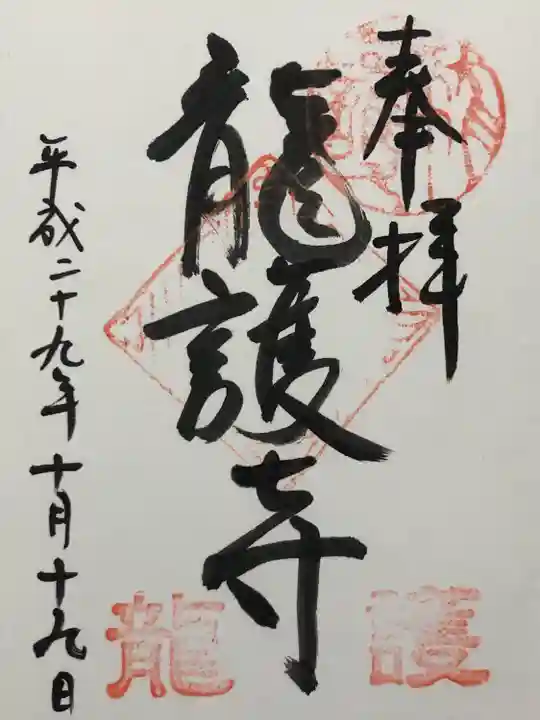 奉拝
龍護寺
平成二十九年十月十九日
護
龍